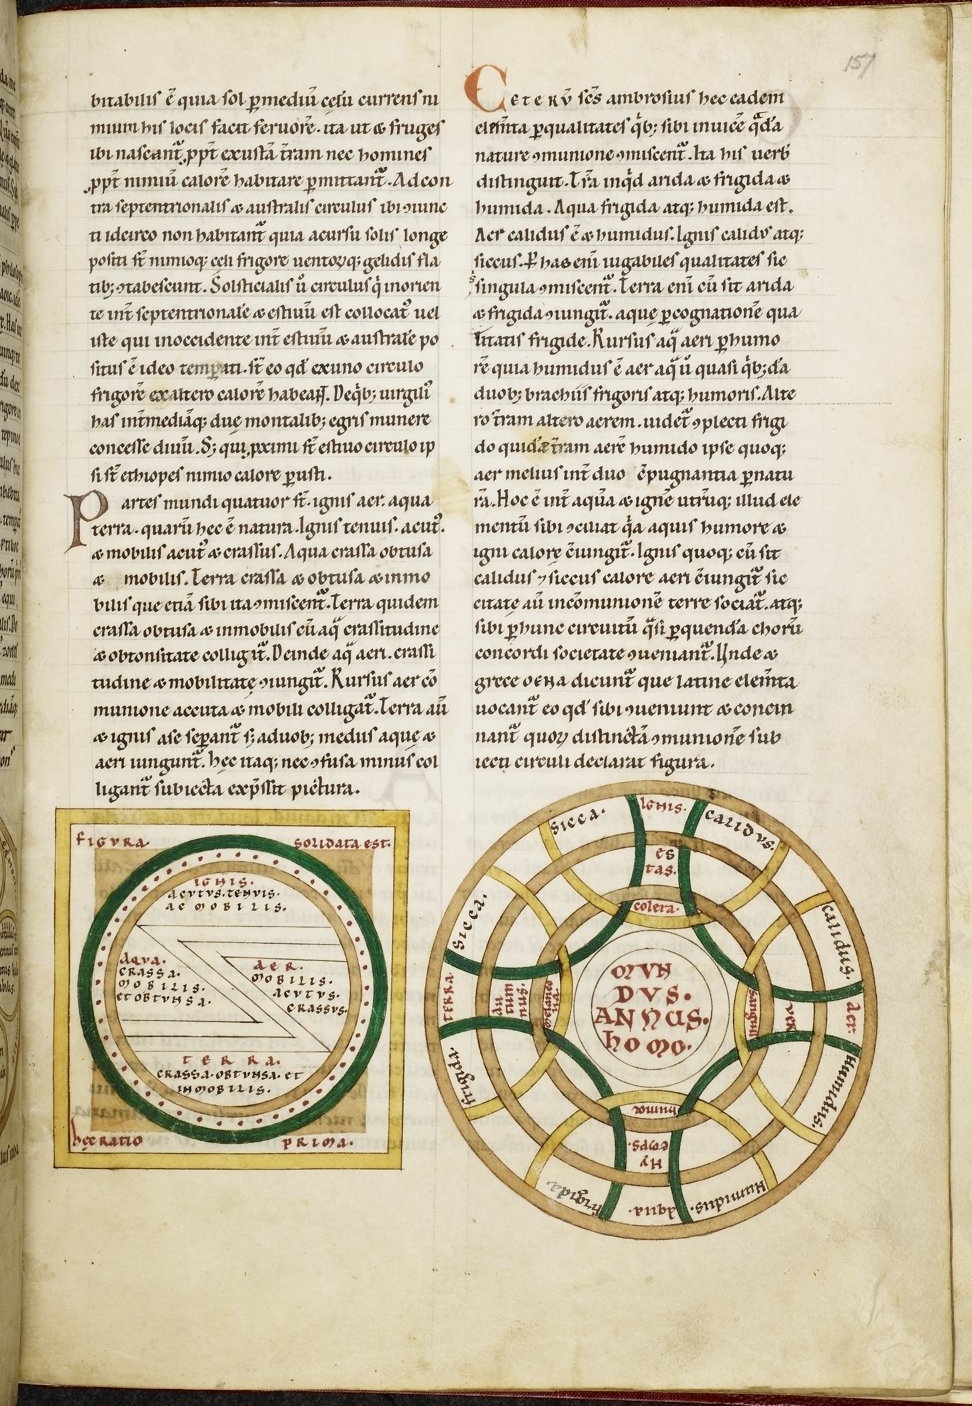 151
bitabilis ē quia sol ꝑmediū celū currens ni
mium his locis facit feruorē. ita ut & fruges
ibi nascant᷑ ꝓpt̄ exustā t̄ram nec homines
ꝓpt̄ nimiū calorē habitare ꝑmittant᷑. Ad con
tra septentrionalis & australis circulus ibi ꝯiunc
ti idcirco non habitant᷑ quia acursu solis longe
positi sī nimioq; celi frigore uentoꝝq; gelidis fla
tib; ꝯtabescunt. Solsticialis ū circulus q̇ inorien
te int̄ septentrionalē & estiuū est collocat᷒ uel
iste qui inoccidente int̄ estiuū & australē po
situs ē ideo temperati. sī eo qd̄ exuno circulo
frigorē ex altero calorē habeaꝗ. Deq̇b; uirgili᷒
has int̄mediāq; due montalib; egris munere
concesse diuū. S; qui ꝓximi sī estiuo circulo ip
si sī ethiopes nimio calore ꝑusti.
Partes mundi quatuor sī. ignis aer. aqua
terra. quarū hec ē natura. Ignis tenuis. acut᷒.
& mobilis acut᷒ & crassus. Aqua crassa obtusa
& mobilis. Terra crassa & obtusa & inmo
bilis que etiā sibi ita ꝯmiscent᷑. Terra quidem
crassa obtusa & inmobilis cū aq̄ crassitudine
& obtonsitate colligit᷑. Deinde aq̄ aeri. crassi
tudine & mobilitate ꝯiungit᷑. Rursus aer cō
munione accuta & mobili colligat᷑. Terra aū
& ignis ase seꝑant᷑ s; aduob; medus aque &
aeri iungunt᷑. hec itaq; nec ꝯfusa minus col
ligant᷑ subiecta exp̄ssit pictura.
Ceterū sc̄s ambrosius hec eadem
elem̄ta ꝑqualitates q̇b; sibi inuicē q̄dā
nature ꝯmunione ꝯmiscent᷑. Ita his uerb᷒
distinguit. Tr̄a inq̇d arida & frigida &
humida. Aqua frigida atq; humida est.
Aer calidus ē & humidus. Ignis calidus atq;
siccus. P̄ has enī iugabiles qualitates sic
singula ꝯmiscent᷑. Terra enī cū sit arida
& frigida ꝯiungit᷑. aque ꝑcognationē qua
litatis frigide. Rursus aq̄ aeri ꝑhumo
rē quia humidus ē aer aq̄ ū quasi q̇b; dā
duob; brachiis frigoris atq; humoris. Alte
ro t̄ram altero aerem. uidet᷑ ꝯplecti frigi
do quidē t̄ram aerē humido ipse quoq;
aer medius int̄ duo cēpugnantia ꝑnatu
rā. Hoc ē int̄ aquā & ignē utrūq; illud ele
mentū sibi ꝯciliat q̄a aquis humore &
igni calore cēiungit᷑. Ignis quoq; cū sit
calidus ⁊ siccus calore aeri cēiungit᷑ sic
citate aū incōmunionē terre sociat᷑. atq;
sibi ꝑhunc circuitū q̄si ꝑquendā chorū
concordi societate ꝯueniant᷑. Unde &
grece dicunt᷑ que latine elem̄ta
uocant᷑ eo qd̄ sibi ꝯueniunt & concin
nant᷑ quoꝝ distinctā ꝯmunionē sub
iecti circuli declarat figura.
figura solidata est.
ignis.
acutus. tenuis.
ac mobilis.
Aqua.
crassa.
mobilis.
et obtunsa.
aer.
mobilis.
acutus.
crassus.
terra.
crassa. obtunsa. et
inmobilis.
hec ratio prima.
Ignis.
calidus.
calidus.
Aer.
Humidus.
Humidus.
Aqua.
frigida.
frigida.
terra.
sicca.
sicca.
es
tas.
colera.
uer
sanguis
hy
emps.
humor
au
tum
nus.
melanco
lia.
MUN
DUS.
ANNUS.
HOMO.